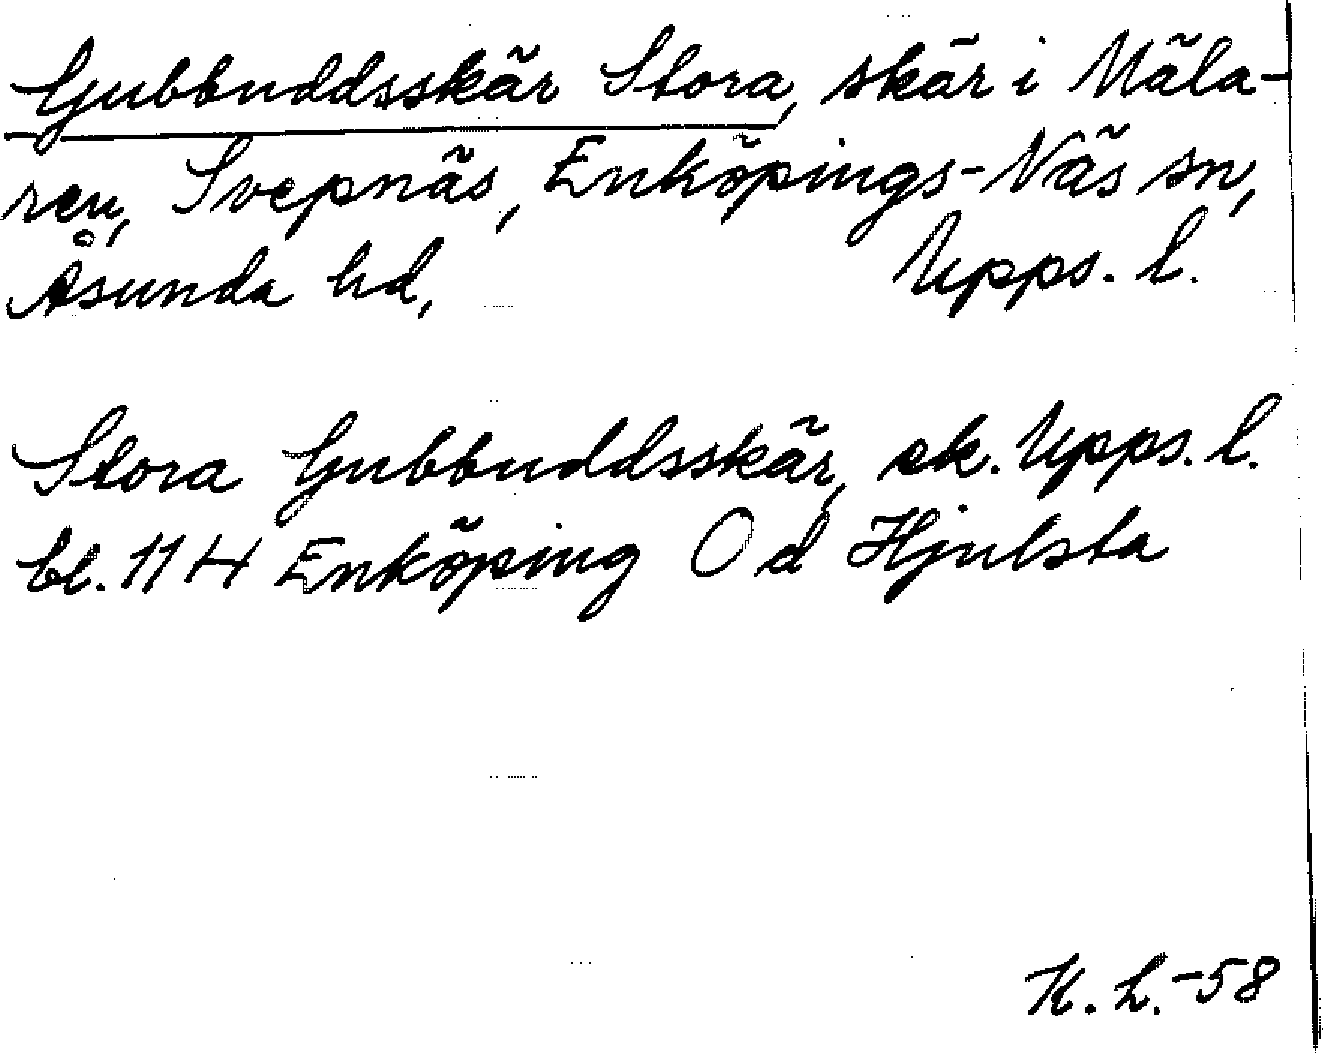 Gubbuddsskär Stora, skär i Mäla-
ren, Svepnäs, Enköpings-Näs sn,
Åsunda hd, Upps. l.
Stora Gubbuddsskär, ek. Upps. l.
bl. 114 Enköping O d Hjulsta
K. L. -58